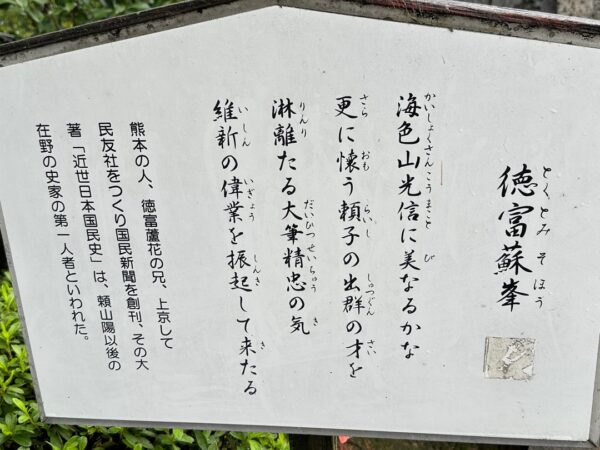 徳富蘇峯
とくとみそほう
海色山光信に美なるかな
かいしょくさんこうまことび
更に懐う頼子の出群の才を
さらおもらいししゅつぐんさい
淋離たる大筆精忠の気
りんりだいひつせいちゅうき
維新の偉業を振起して来たる
いしんいぎょうしんきき
熊本の人、徳富蘆花の兄、上京して
民友社をつくり国民新聞を創刊、その大
著「近世日本国民史」は、頼山陽以後の
在野の史家の第一人者といわれた。